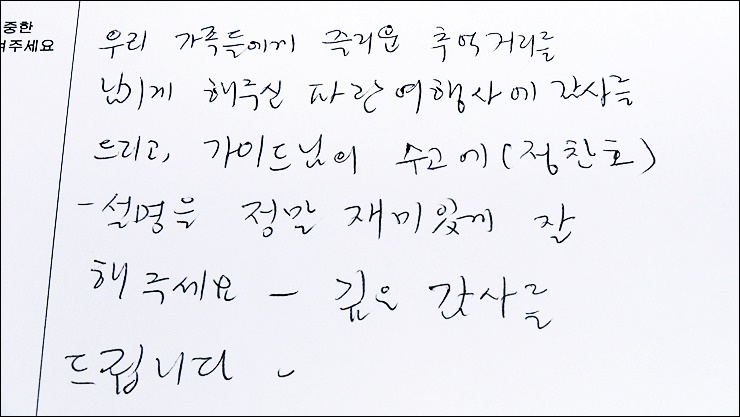 중한
겨주세요
우리 가족들에게 즐거운 추억거리를
남기게 해주신 파란여행사에 감사를
드리고, 가이드님의 수고에(정찬호)
-설명을 정말 재미있게 잘
해주세요 - 깊은 감사를
드립니다 -